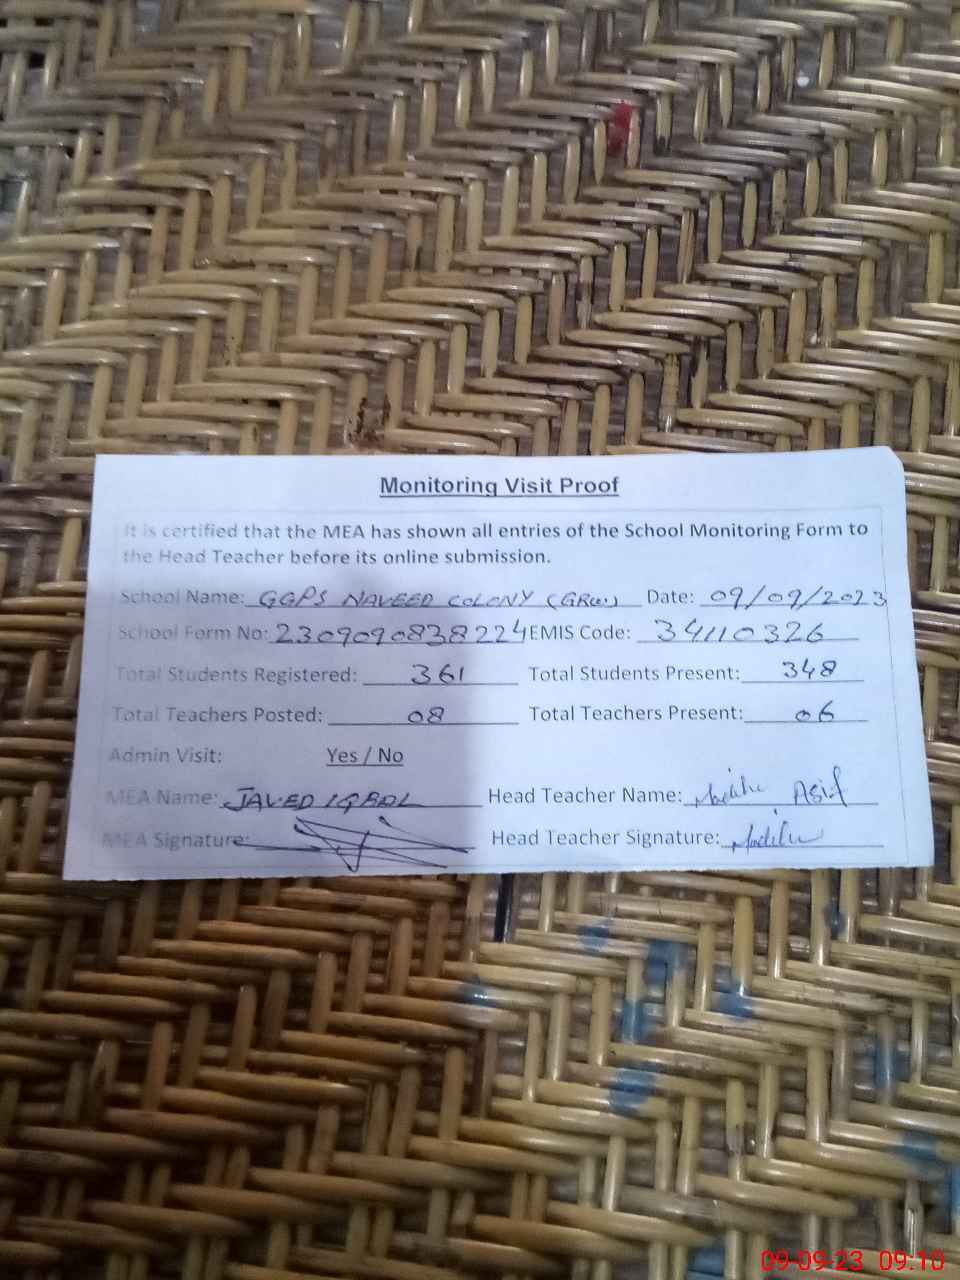 Monitoring Visit Proof
It is certified that the MEA has shown all entries of the School Monitoring Form to
the Head Teacher before its online submission.
School Name: GGPS NAVEED COLONY (GRW) Date: 09/09/2023
School Form No: 2309090838224 EMIS Code: 34110326
Total Students Registered: 361 Total Students Present: 348
Total Teachers Posted: 08 Total Teachers Present: 06
Admin Visit: Yes / No
MEA Name: JAVED IQBAL Head Teacher Name: Madiha Asif
MEA Signature: Head Teacher Signature: Madiha
09-09-23 09:10